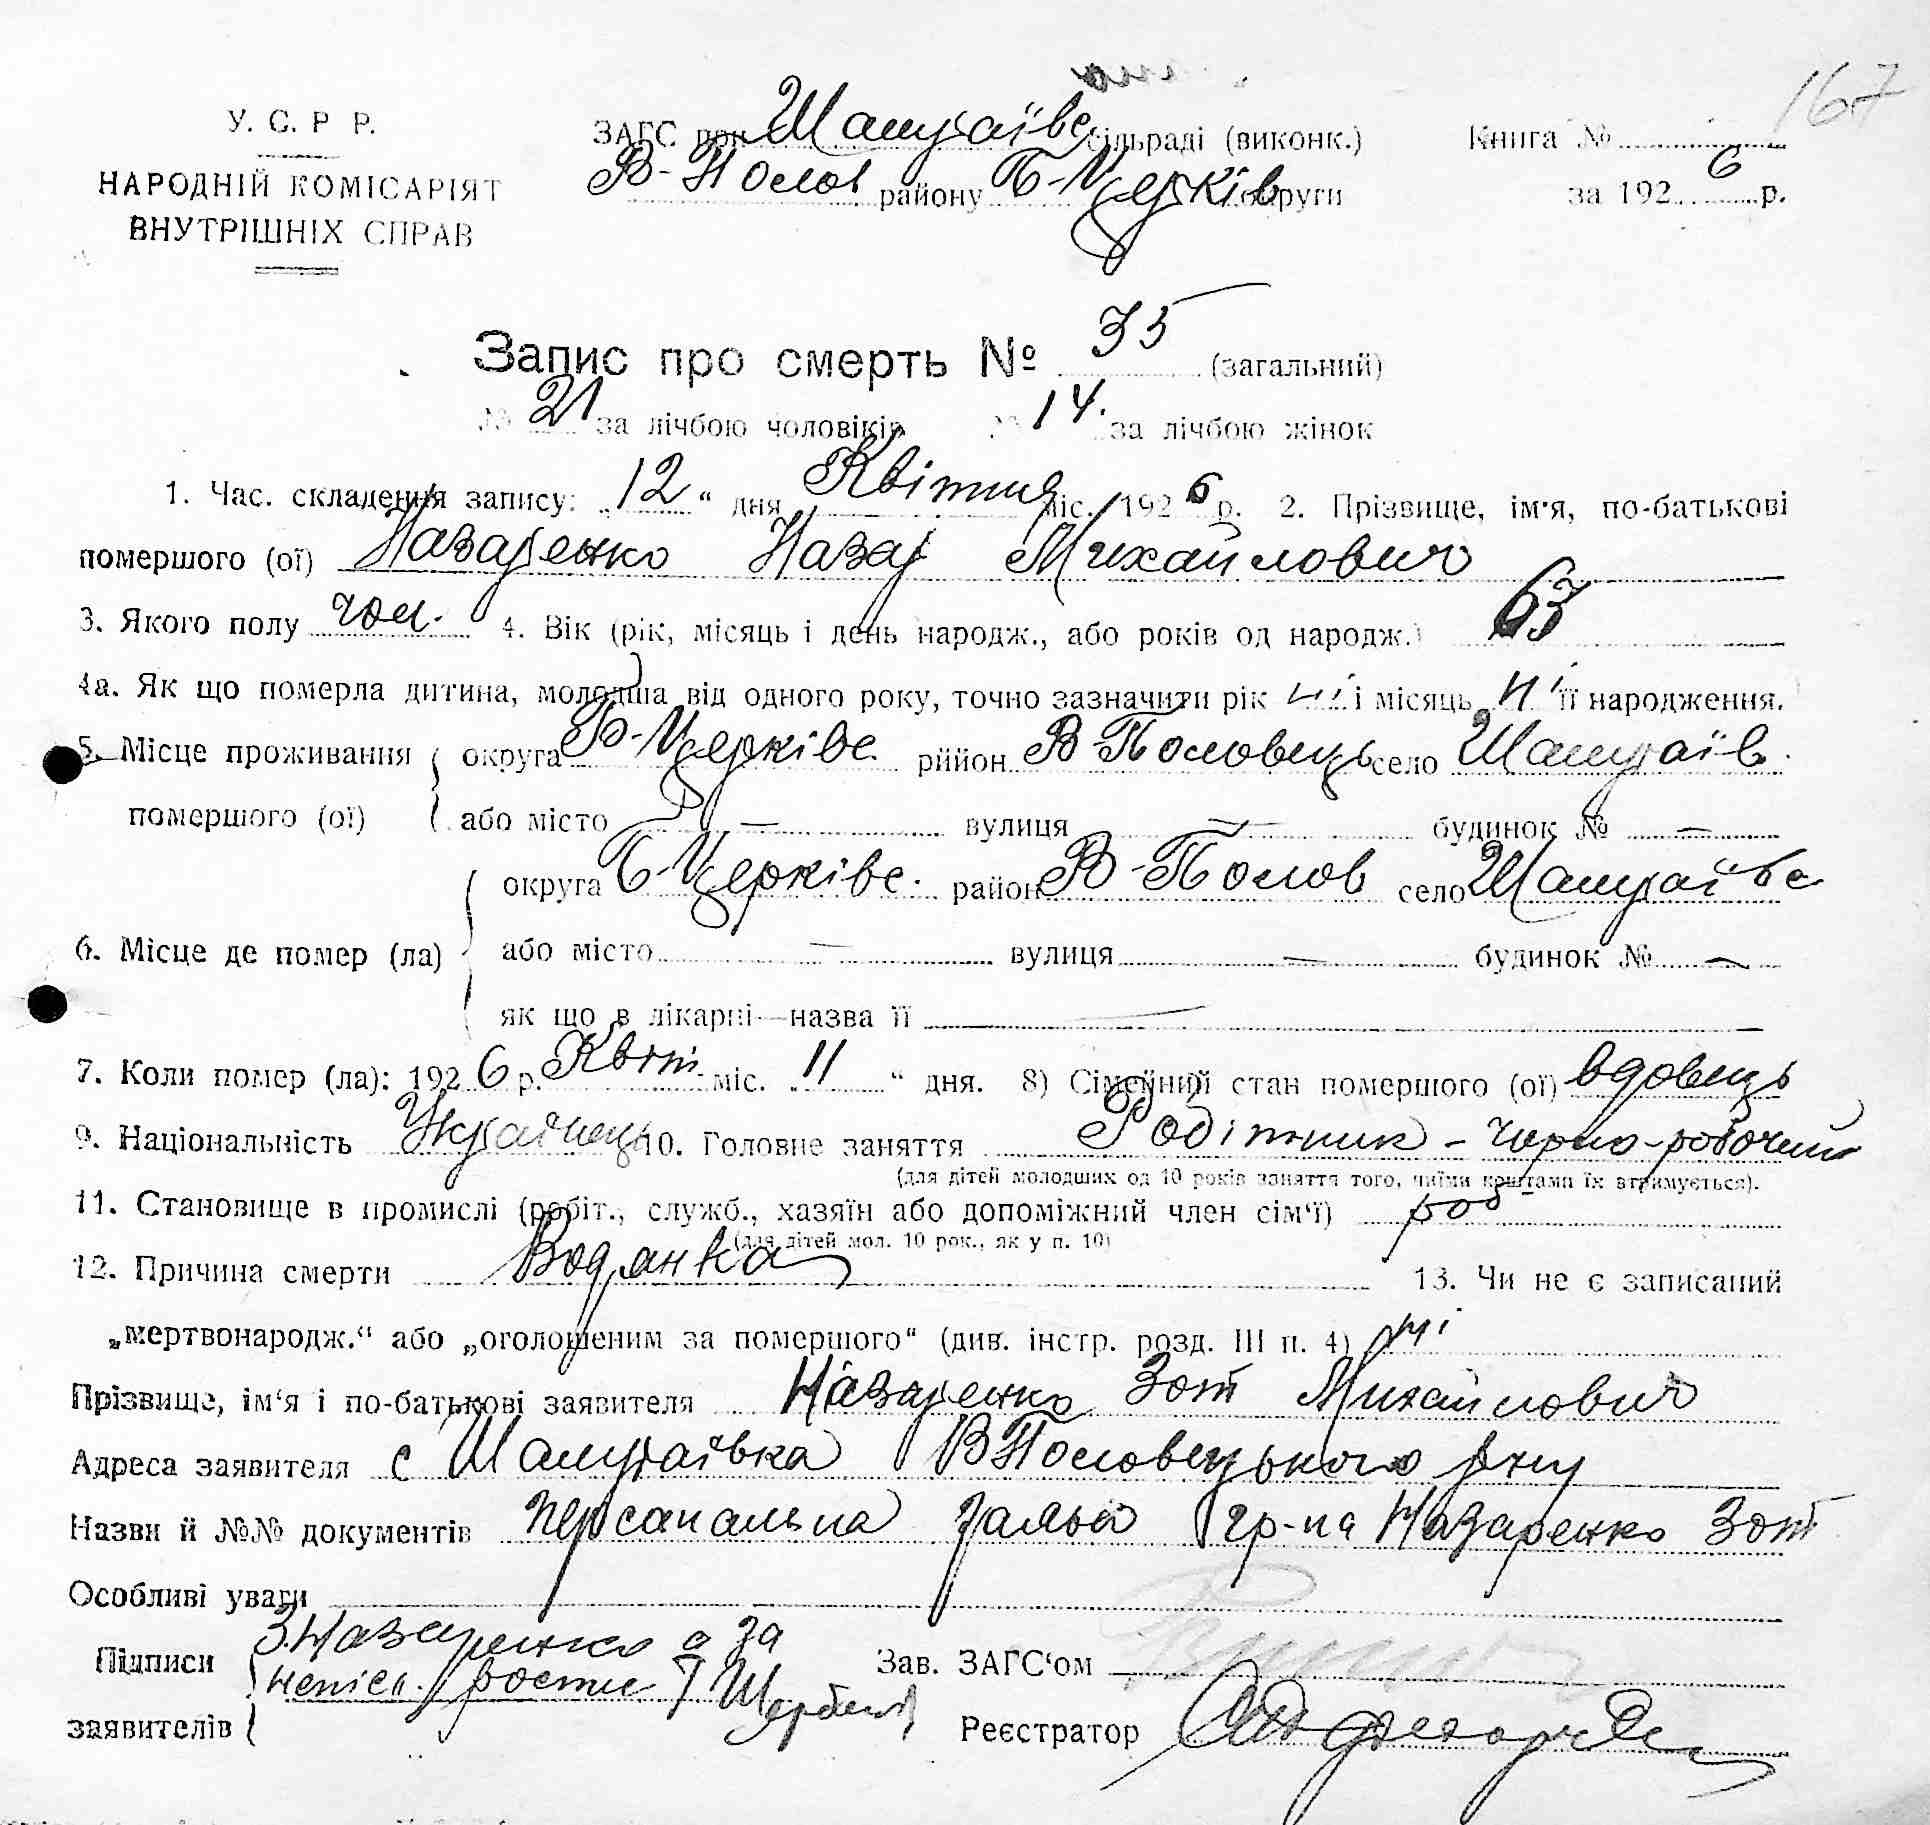 167
У. С. Р Р.
НАРОДНІЙ КОМІСАРІЯТ
ВНУТРІШНІХ СПРАВ
ЗАГС при Шамраївс сільраді (виконк.)
В-Полов району Б-Церків округи
Книга №
за 1926 р.
Запис про смерть № 35 (загальний)
№ 21 за лічбою чоловіків № 14. за лічбою жінок
1. Час. складення запису: „12“ дня Квітня міс. 1926 р. 2. Прізвище, ім'я, по-батькові
помершого (ої) Назаренко Назар Михайлович
3. Якого полу чол. 4. Вік (рік, місяць і день народж., або років од народж.) 63
4а. Як що померла дитина, молодша від одного року, точно зазначити рік ні і місяць ні її народження.
5. Місце проживання округа Б-Церківс рййон В-Половець село Шамраїв.
помершого (ої) або місто — вулиця — будинок № —
округа Б-Церківс. район В-Полов село Шамраївс
6. Місце де помер (ла) або місто — вулиця — будинок № —
як що в лікарні—назва її —
7. Коли помер (ла): 1926 р. Квіт. міс. „11“ дня. 8) Сімейний стан помершого (ої) вдовець
9. Національність Українець 10. Головне заняття Робітник - чорно-робочий
(для дітей молодших од 10 років заняття того, чиїми коштами їх втримується).
11. Становище в промислі (робіт., служб., хазяїн або допоміжний член сім'ї) роб
(для дітей мол. 10 рок., як у п. 10)
12. Причина смерти Водянка 13. Чи не є записаний
„мертвонародж.“ або „оголошеним за помершого“ (див. інстр. розд. III п. 4) ні
Прізвище, ім'я і по-батькові заявителя Назаренко Зот Михайлович
Адреса заявителя с Шамраївка ВПоловецького р-ну
Назви й №№ документів персанальна заява гр-на Назаренко Зот
Особливі уваги
Підписи З. Назаренко а за
непісь. рости Т Щербина
заявителів
Зав. ЗАГС'ом
Реєстратор